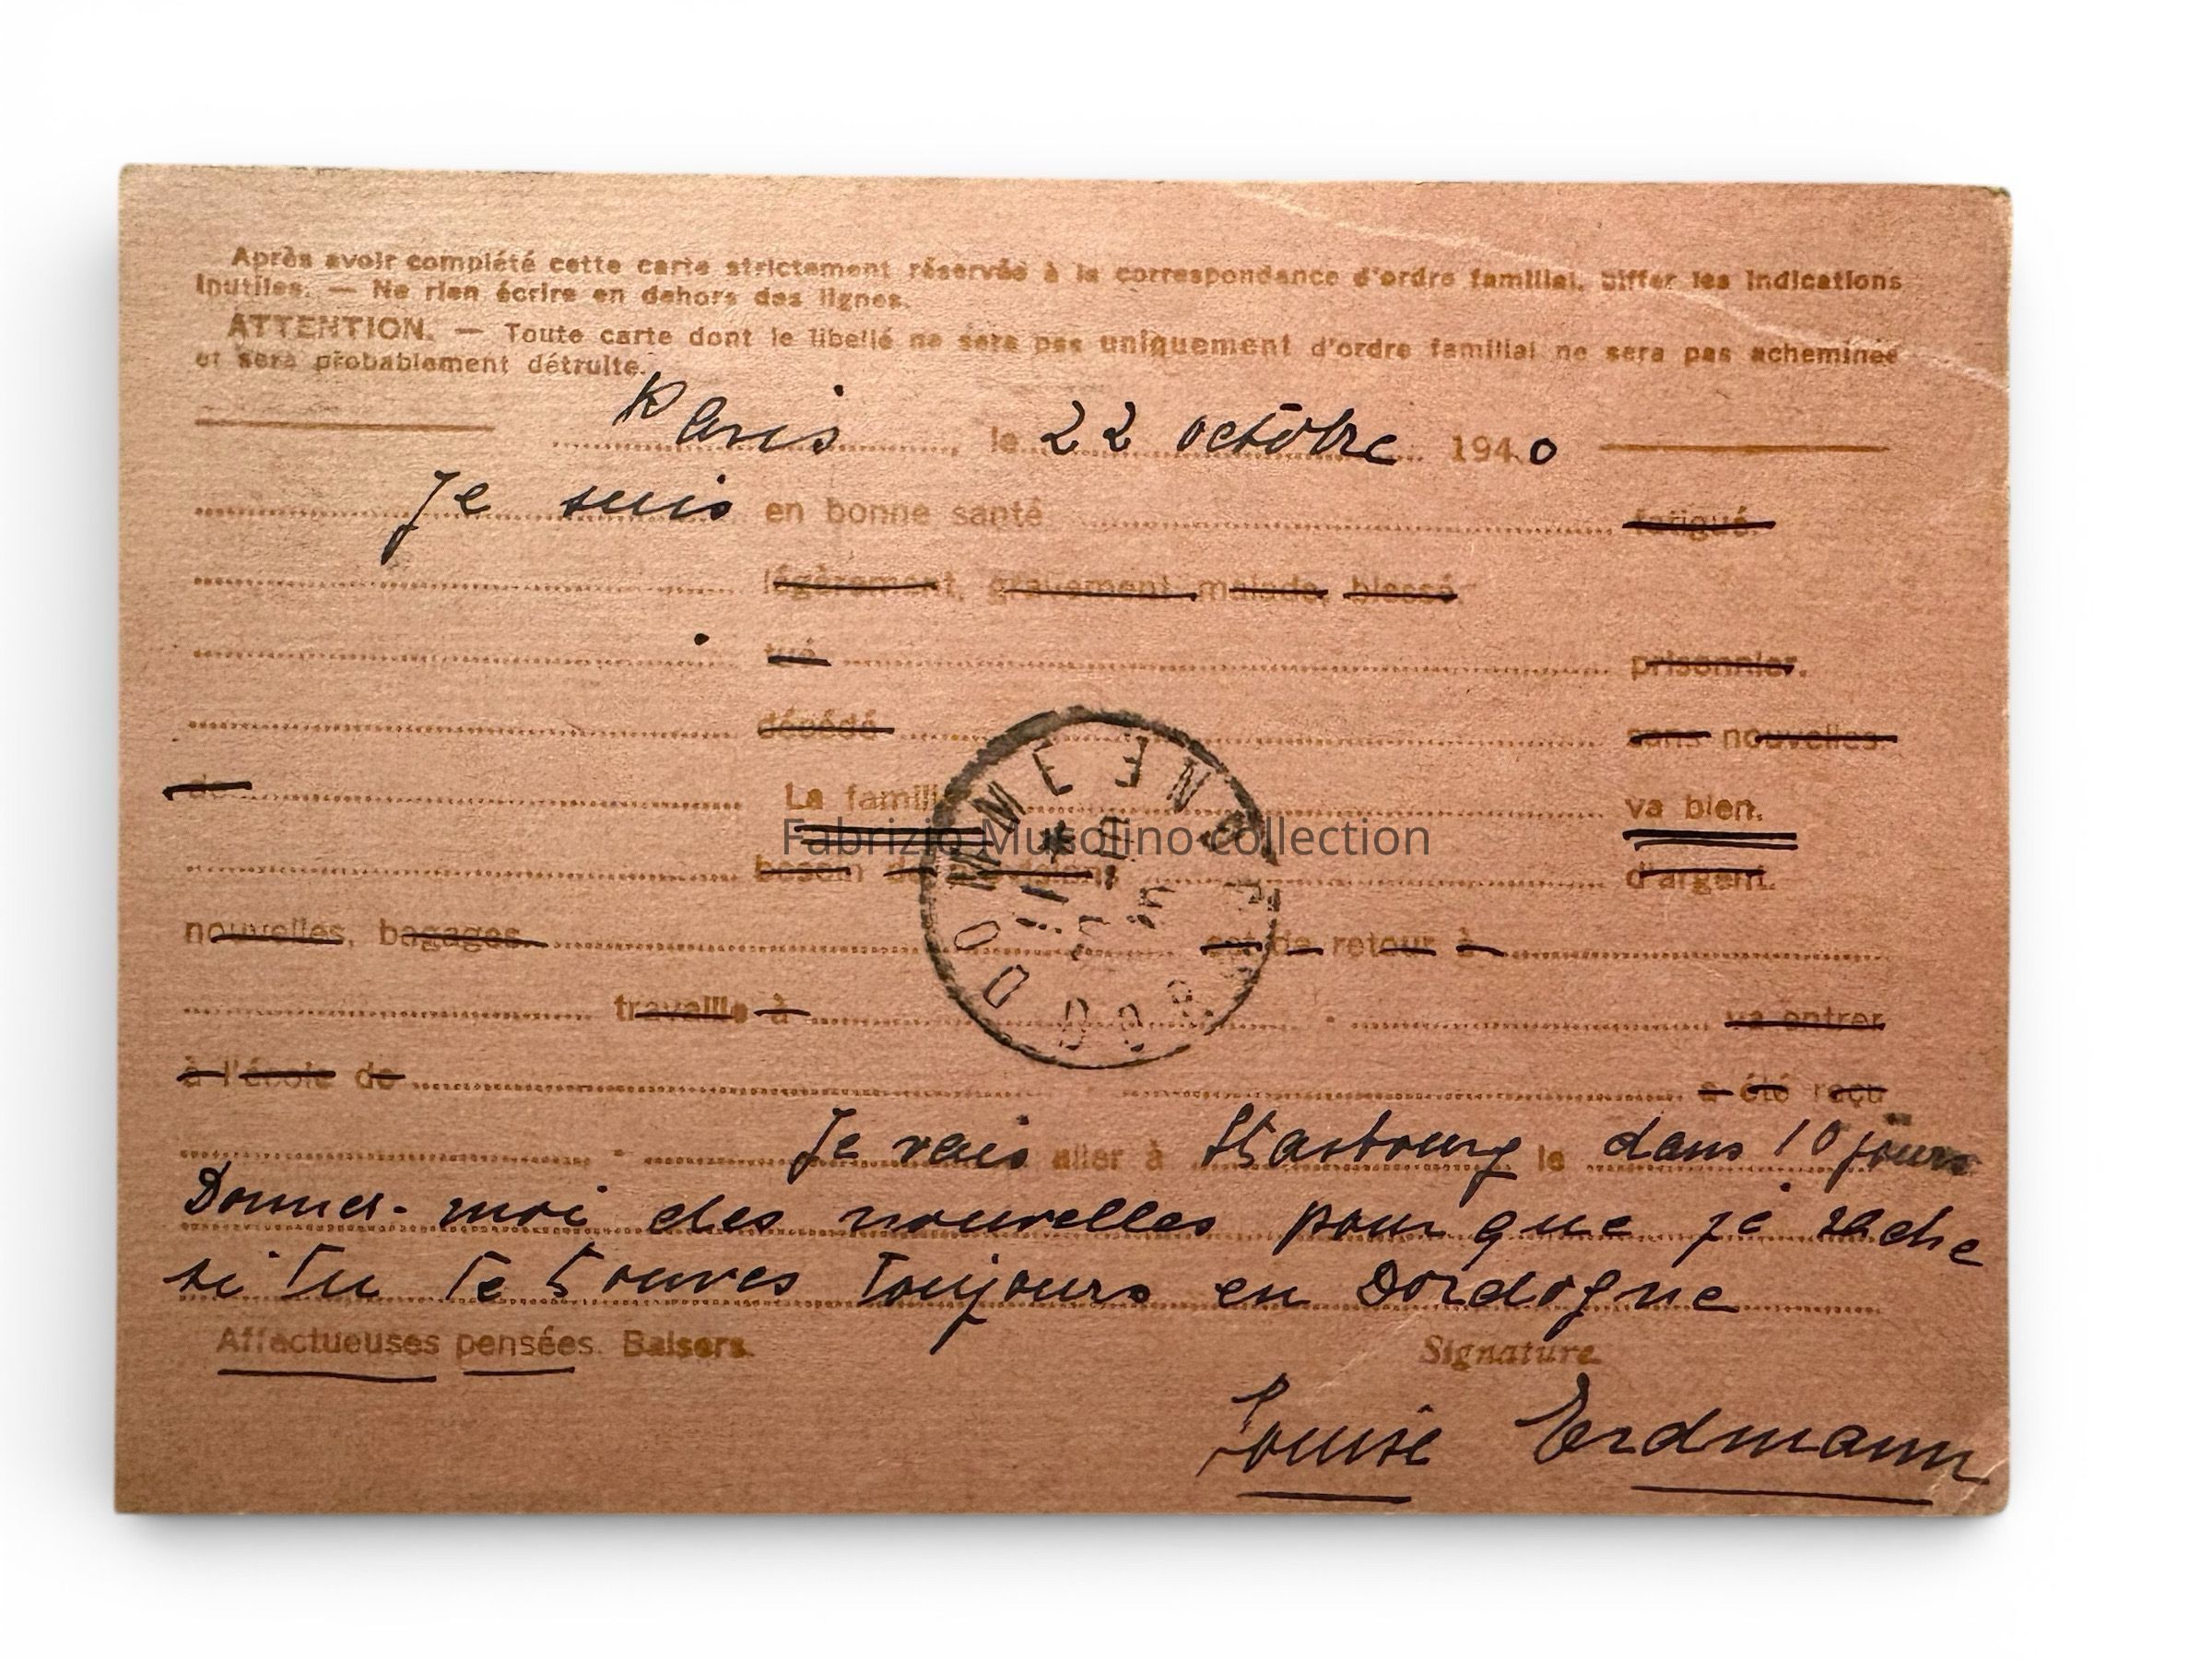 Après avoir complété cette carte strictement réservée à la correspondance d'ordre familial, biffer les indications
inutiles. — Ne rien écrire en dehors des lignes.
ATTENTION. — Toute carte dont le libellé ne sera pas uniquement d'ordre familial ne sera pas acheminée
et sera probablement détruite.
Paris, le 22 octobre 1940
Je suis en bonne santé fatigué.
légèrement, gravement malade, blessé.
tué prisonnier.
décédé sans nouvelles.
de La famille va bien.
Fabrizio Musolino collection
besoin de provisions d'argent.
nouvelles, bagages. est de retour à
travaille à va entrer
à l'école de a été reçu
Je vais aller à Strasbourg le dans 10 jours
Donnes-moi des nouvelles pour que je sache
si tu te trouves toujours en Dordogne
Affectueuses pensées. Baisers. Signature.
Louise Erdmann
DOMME
DORDOGNE